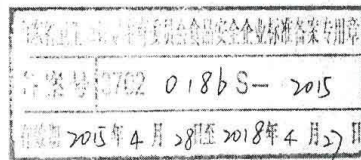 生委员会食品安全企业标准备案专用章
备案号 3702 0186 S- 2015
有效期 2015年 4 月 28日至 2018年 4 月 27 日